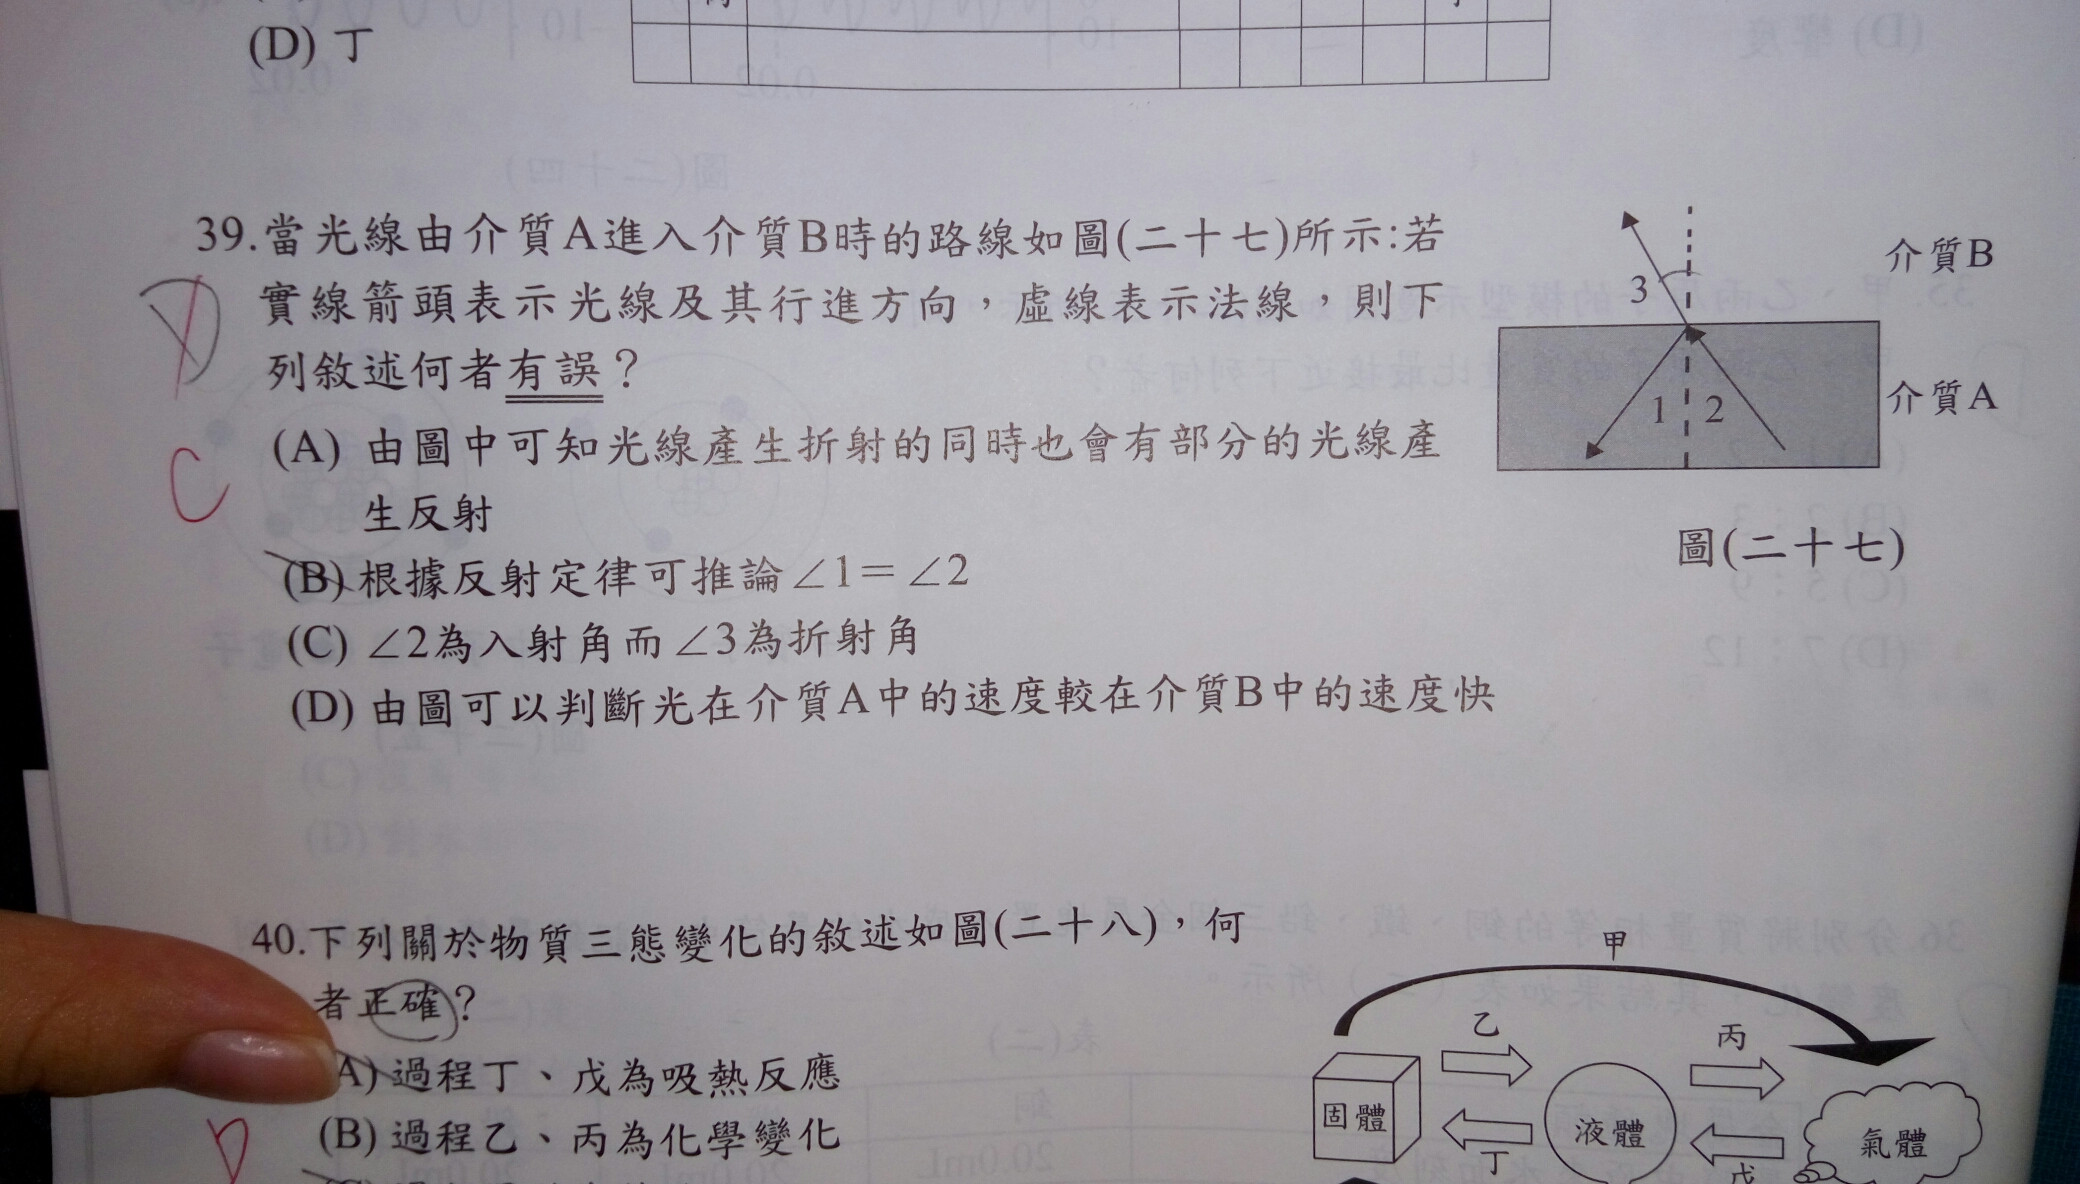 (D) 丁
39.當光線由介質A進入介質B時的路線如圖(二十七)所示:若
實線箭頭表示光線及其行進方向，虛線表示法線，則下
列敘述何者有誤？
D
C
(A) 由圖中可知光線產生折射的同時也會有部分的光線產
生反射
(B) 根據反射定律可推論∠1=∠2
(C) ∠2為入射角而∠3為折射角
(D) 由圖可以判斷光在介質A中的速度較在介質B中的速度快
3
介質B
1
2
介質A
圖(二十七)
40.下列關於物質三態變化的敘述如圖(二十八)，何
者正確？
A) 過程丁、戊為吸熱反應
(B) 過程乙、丙為化學變化
D
甲
乙
丙
固體
液體
氣體
丁
戊